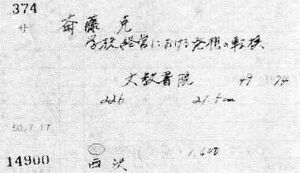 374
サ
斎藤 克
学校経営における発想の転換
文教書院 49 1974
226 21.5cm
50.7.17
14900 西沢 1,600